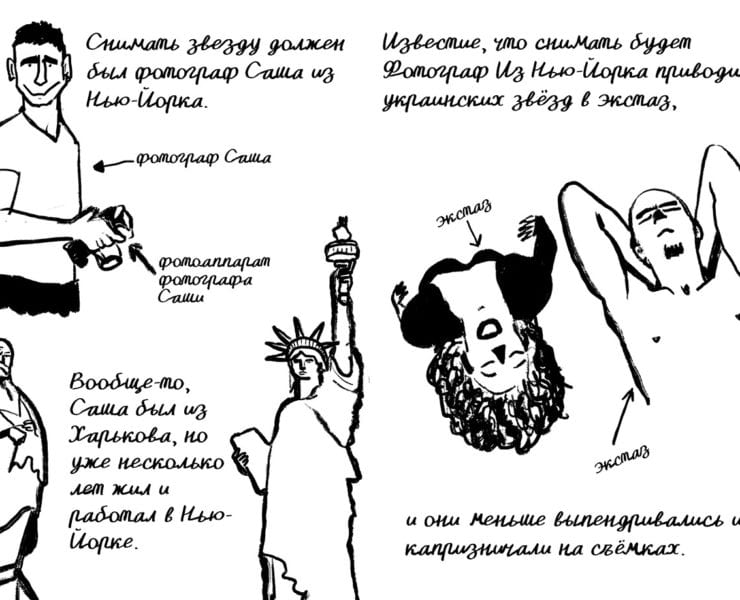 Снимать звезду должен
был фотограф Саша из
Нью-Йорка.
фотограф Саша
фотоаппарат
фотографа
Саши
Вообще-то,
Саша был из
Харькова, но
уже несколько
лет жил и
работал в Нью-
Йорке.
Известие, что снимать будет
Фотограф Из Нью-Йорка приводи
украинских звёзд в экстаз,
экстаз
экстаз
и они меньше выпендривались и
капризничали на съёмках.